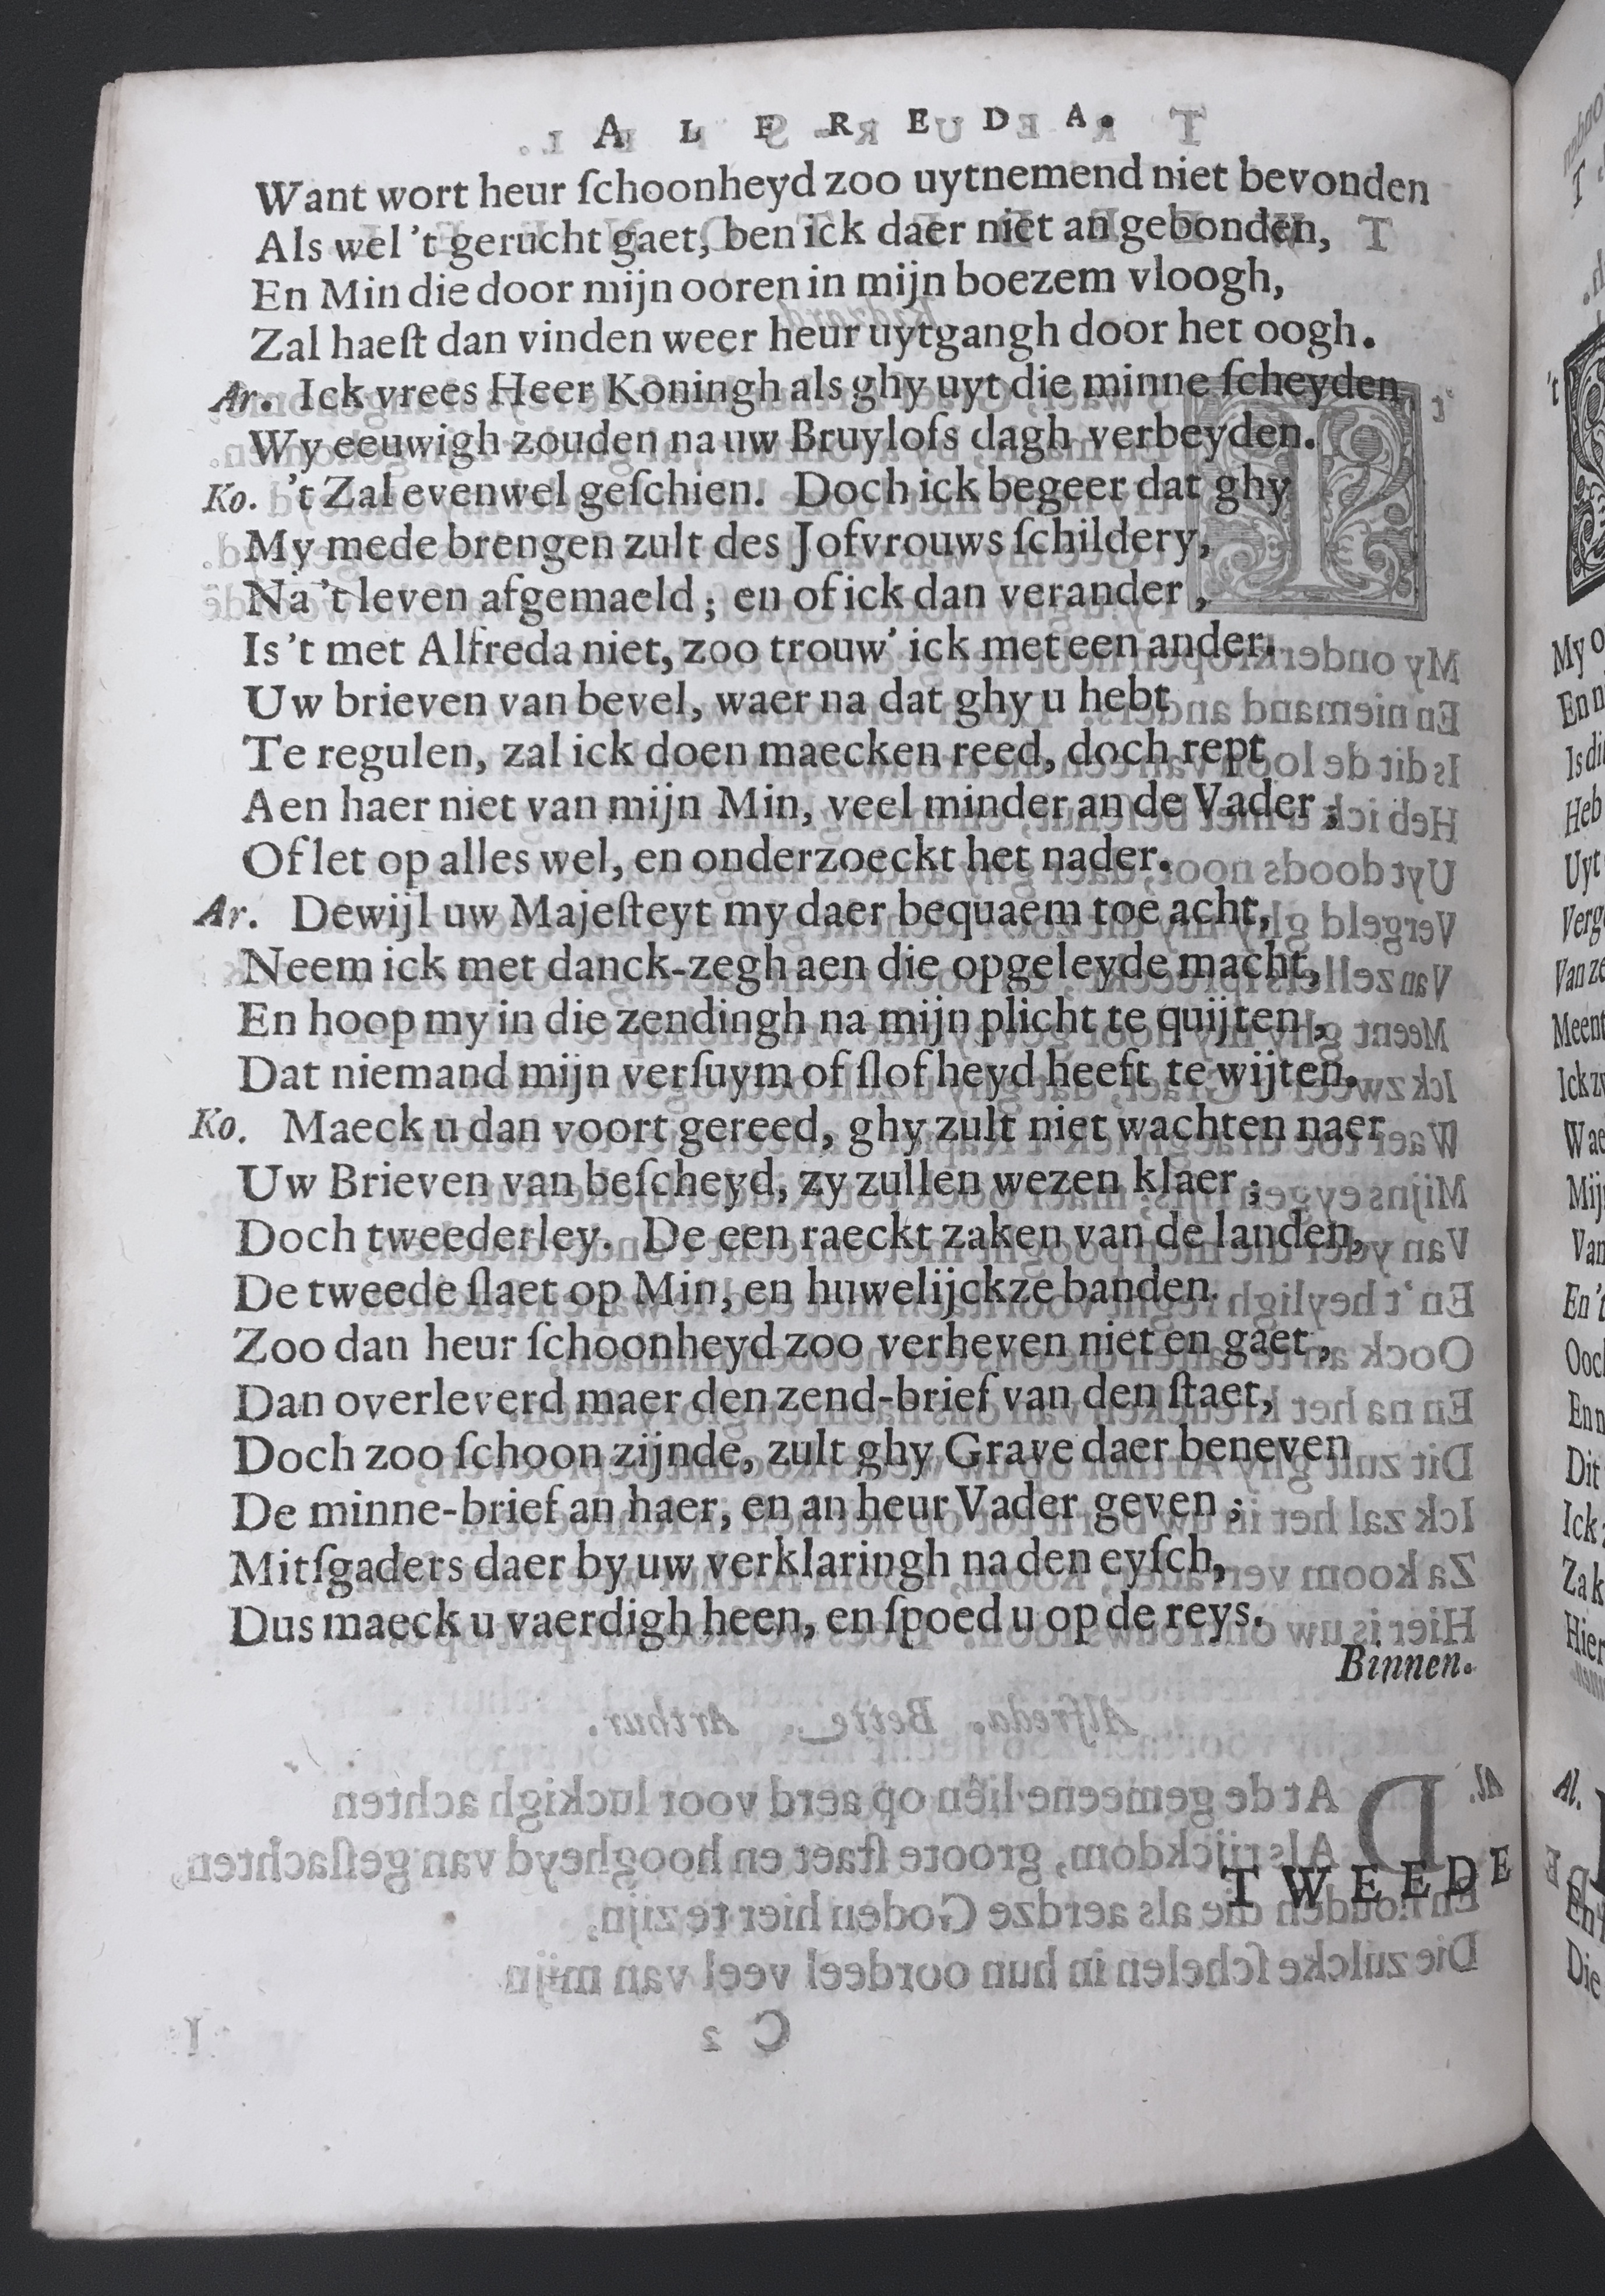 ALFREDA.
Want wort heur ſchoonheyd zoo uytnemend niet bevonden
Als wel 't gerucht gaet, ben ick daer niet an gebonden,
En Min die door mijn ooren in mijn boezem vloogh,
Zal haeſt dan vinden weer heur uytgangh door het oogh.
Ar. Ick vrees Heer Koningh als ghy uyt die minne ſcheyden,
Wy eeuwigh zouden na uw Bruylofs dagh verbeyden.
Ko. 't Zal evenwel geſchien. Doch ick begeer dat ghy
My mede brengen zult des Jofvrouws ſchildery,
Na 't leven afgemaeld; en of ick dan verander,
Is 't met Alfreda niet, zoo trouw' ick met een ander.
Uw brieven van bevel, waer na dat ghy u hebt
Te regulen, zal ick doen maecken reed, doch rept
Aen haer niet van mijn Min, veel minder an de Vader;
Of let op alles wel, en onderzoeckt het nader.
Ar. Dewijl uw Majeſteyt my daer bequaem toe acht,
Neem ick met danck-zegh aen die opgeleyde macht,
En hoop my in die zendingh na mijn plicht te quijten,
Dat niemand mijn verſuym of ſlofheyd heeft te wijten.
Ko. Maeck u dan voort gereed, ghy zult niet wachten naer
Uw Brieven van beſcheyd, zy zullen wezen klaer;
Doch tweederley. De een raeckt zaken van de landen,
De tweede ſlaet op Min, en huwelijckze banden.
Zoo dan heur ſchoonheyd zoo verheven niet en gaet,
Dan overleverd maer den zend-brief van den ſtaet,
Doch zoo ſchoon zijnde, zult ghy Grave daer beneven
De minne-brief an haer, en an heur Vader geven;
Mitſgaders daer by uw verklaringh na den eyſch,
Dus maeck u vaerdigh heen, en ſpoed u op de reys.
Binnen.
TWEEDE
't
My o
En n
Is di
Heb
Uyt
Verg
Van ze
Meent
Ick zv
Wae
Mij
Van
En 't
Ooc
En n
Dit
Ick
Za k
Hier
Al.
En
Die